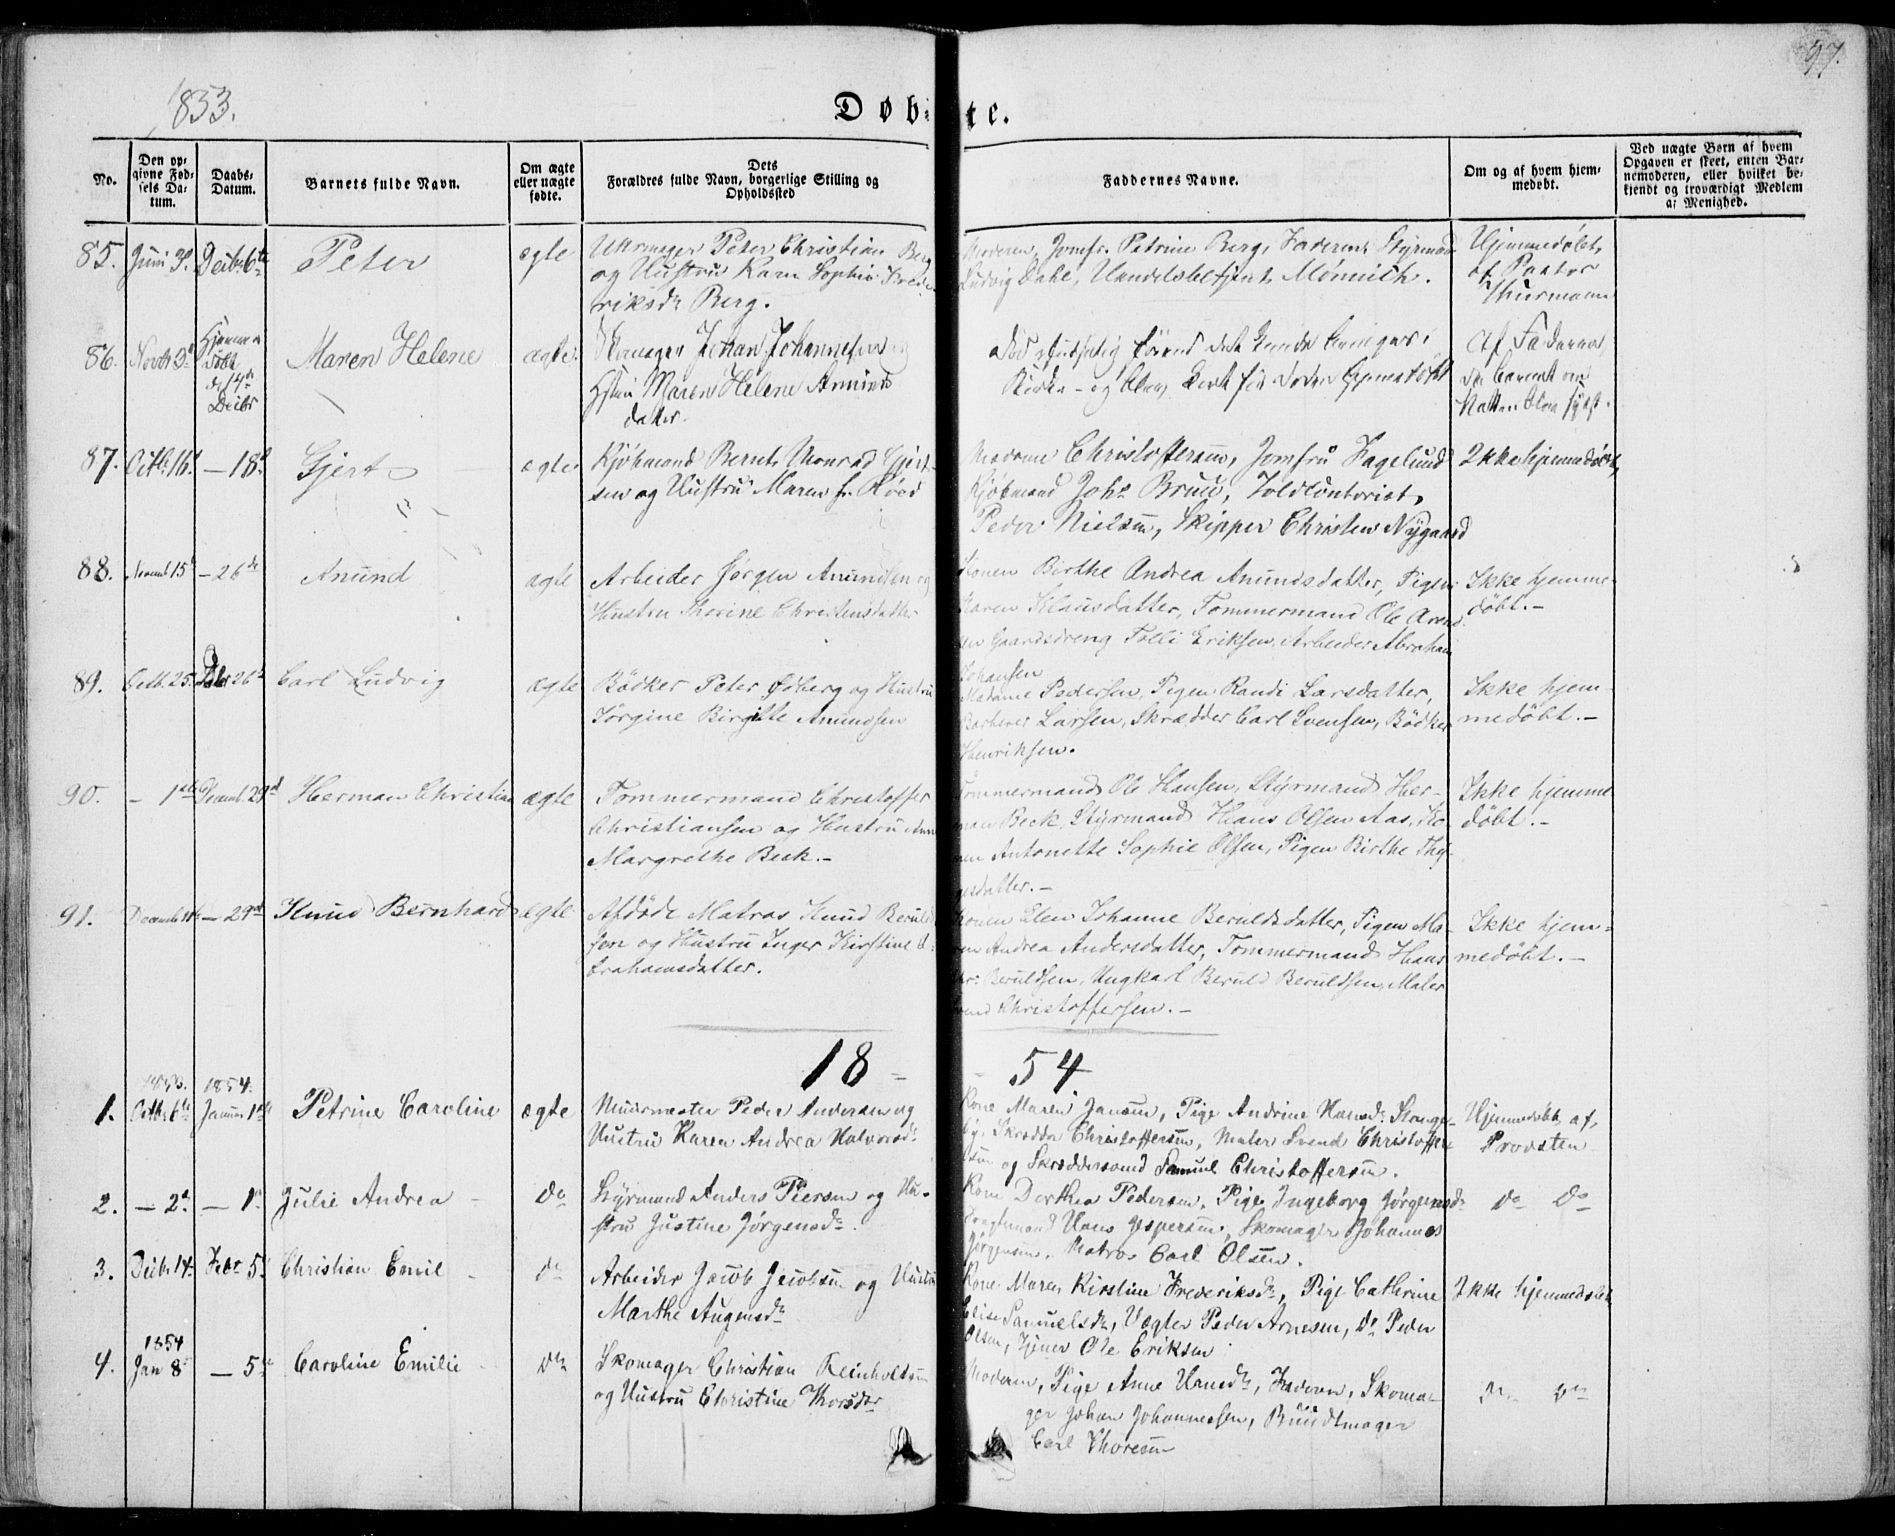 97.
1853.
Døbte.
No.
Den opgivne Fødsels Datum.
Daabs-Datum.
Barnets fulde Navn.
Om ægte eller uægte fødte.
Dets Forældres fulde Navn, borgerlige Stilling og Opholdssted
Faddernes Navne.
Om og af hvem hjemmedøbt.
Ved uægte Børn af hvem Opgaven er skeet, enten Barnemoderen, eller hvilket bekjendt og troværdigt Medlem af Menighed.
85. Juni 3. Decbr 6te Peter ægte
Uhrmager Peter Christian Berg
og Hustru Karn Sophie Frede-
riksdr Berg.
Moderen, Jomfr. Petrine Berg, Faderen, Styrmand
Ludvig Dahl, Handelsbetjent Mønnich.
Hjemmedøbt
af Pastor
Thurmann
86. Novbr 3d Hjemme
døbt
d. 14de
Decbr
Maren Helene ægte
Skomager Johan Johannesen og
Hstru Maren Helene Amunds
datter.
Kirke - og blev
87. Octbr 16. — 18d Gjert ægte
Kjøbmand Bernt Monrad Gjert-
sen og Hustru Maren f. Røed
Madame Christoffersen, Jomfru Fagelund
Kjøbmand Johs Bruu, Toldcontorist
Peder Nielsen, Skipper Christen Nygaard
Ikke hjemmedøbt
88. Novemb 15d — 26de Anund ægte
Arbeider Jørgen Anundsen og
Hustru Thorine Christensdatter
Konen Birthe Andrea Anundsdatter, Pigen
Karen Klausdatter, Tømmermand Ole Arend-
sen Gaardsdreng Tolli Eriksen, Arbeider Abraham
Johansen
Ikke hjemme-
døbt.—
89. Octb. 25. Decbr 26d Carl Ludvig ægte
Bødker Peter Øberg og Hustru
Jørgine Birgitte Amundsen
Madame Pedersen, Pigen Randi Larsdatter,
Barberer Larsen, Skrædder Carl Svensen, Bødker
Henriksen.
Ikke hjem-
medøbt.—
90. — 1ste Decemb. 29d Herman Christian ægte
Tømmermand Christoffer
Christiansen og Hustru Anne
Margrethe Beck.—
Tømmermand Ole Hansen, Styrmand Her-
man Beck, Styrmand Hans Olsen Aas, Ko-
nen Antonette Sophie Olsen, Pigen Birthe Thy-
gesdatter.—
Ikke hjemme
døbt.—
91. Decemb 11te — 29d Knud Bernhard ægte
Afdøde Matros Knud Beruld
sen og Hustru Inger Kirstine A-
brahamsdatter.
Konen Elen Johanne Beruldsdatter, Pigen Ma-
ren Andrea Andersdatter, Tømmermand Hans
Chr: Beruldsen, Ungkarl Beruld Beruldsen, Maler
Svend Christoffersen.—
Ikke hjem-
medøbt.—
18 — 54.
1853. 1854.
1. Octbr 6te Januar 1ste Petrine Caroline ægte
Muurmester Peder Andersen og
Hustru Karen Andrea Halvorsdr
Kone Maren Jansen, Pige Andrine Hansdr Stange-
by, Skrædder Christoffersen, Maler Svend Christoffer
sen og Skræddersvend Samuel Christoffersen.
Hjemmedøbt af
Provsten
2. — 2d — 1ste Julie Andrea — do
Styrmand Anders Piersen og Hu-
stru Justine Jørgensdr
Kone Dorthea Pedersen, Pige Ingeborg Jørgensdr
Hans Jespersen, Skomager Johannes
Jørgensen, Matros Carl Olsen.
do do
3. Decbr 14. Febr 5. Christian Emil — do
Arbeider Jacob Jacobsen og Hustru
Marthe Augensdr
Kone Maren Kirstine Frederiksdr, Pige Cathrine
Elise Samuelsdr, Vægter Peder Arnesen, do Peder
Olsen, Tjener Ole Eriksen
Ikke hjemmedøbt
1854
4. Jan 8d — 5te Caroline Emilie — do
Skomager Christian Reinholtsen
og Hustru Christine Thorsdr
Moderen, Pige Anne Urnsdr, Faderen, Skoma-
ger Johan Johannessen, Buudtmager
Carl Thoresen
do do